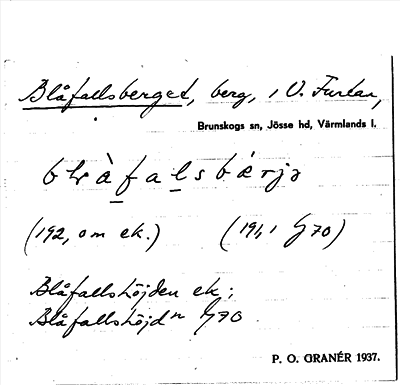 Blåfallsberget, berg, i V. Furtan,
Brunskogs sn, Jösse hd, Värmlands l.
blràfalsbærjə
(192, om ek.) (191, i G70)
Blåfallshöjden ek;
Blåfallshöjdn G70
P. O. GRANÉR 1937.